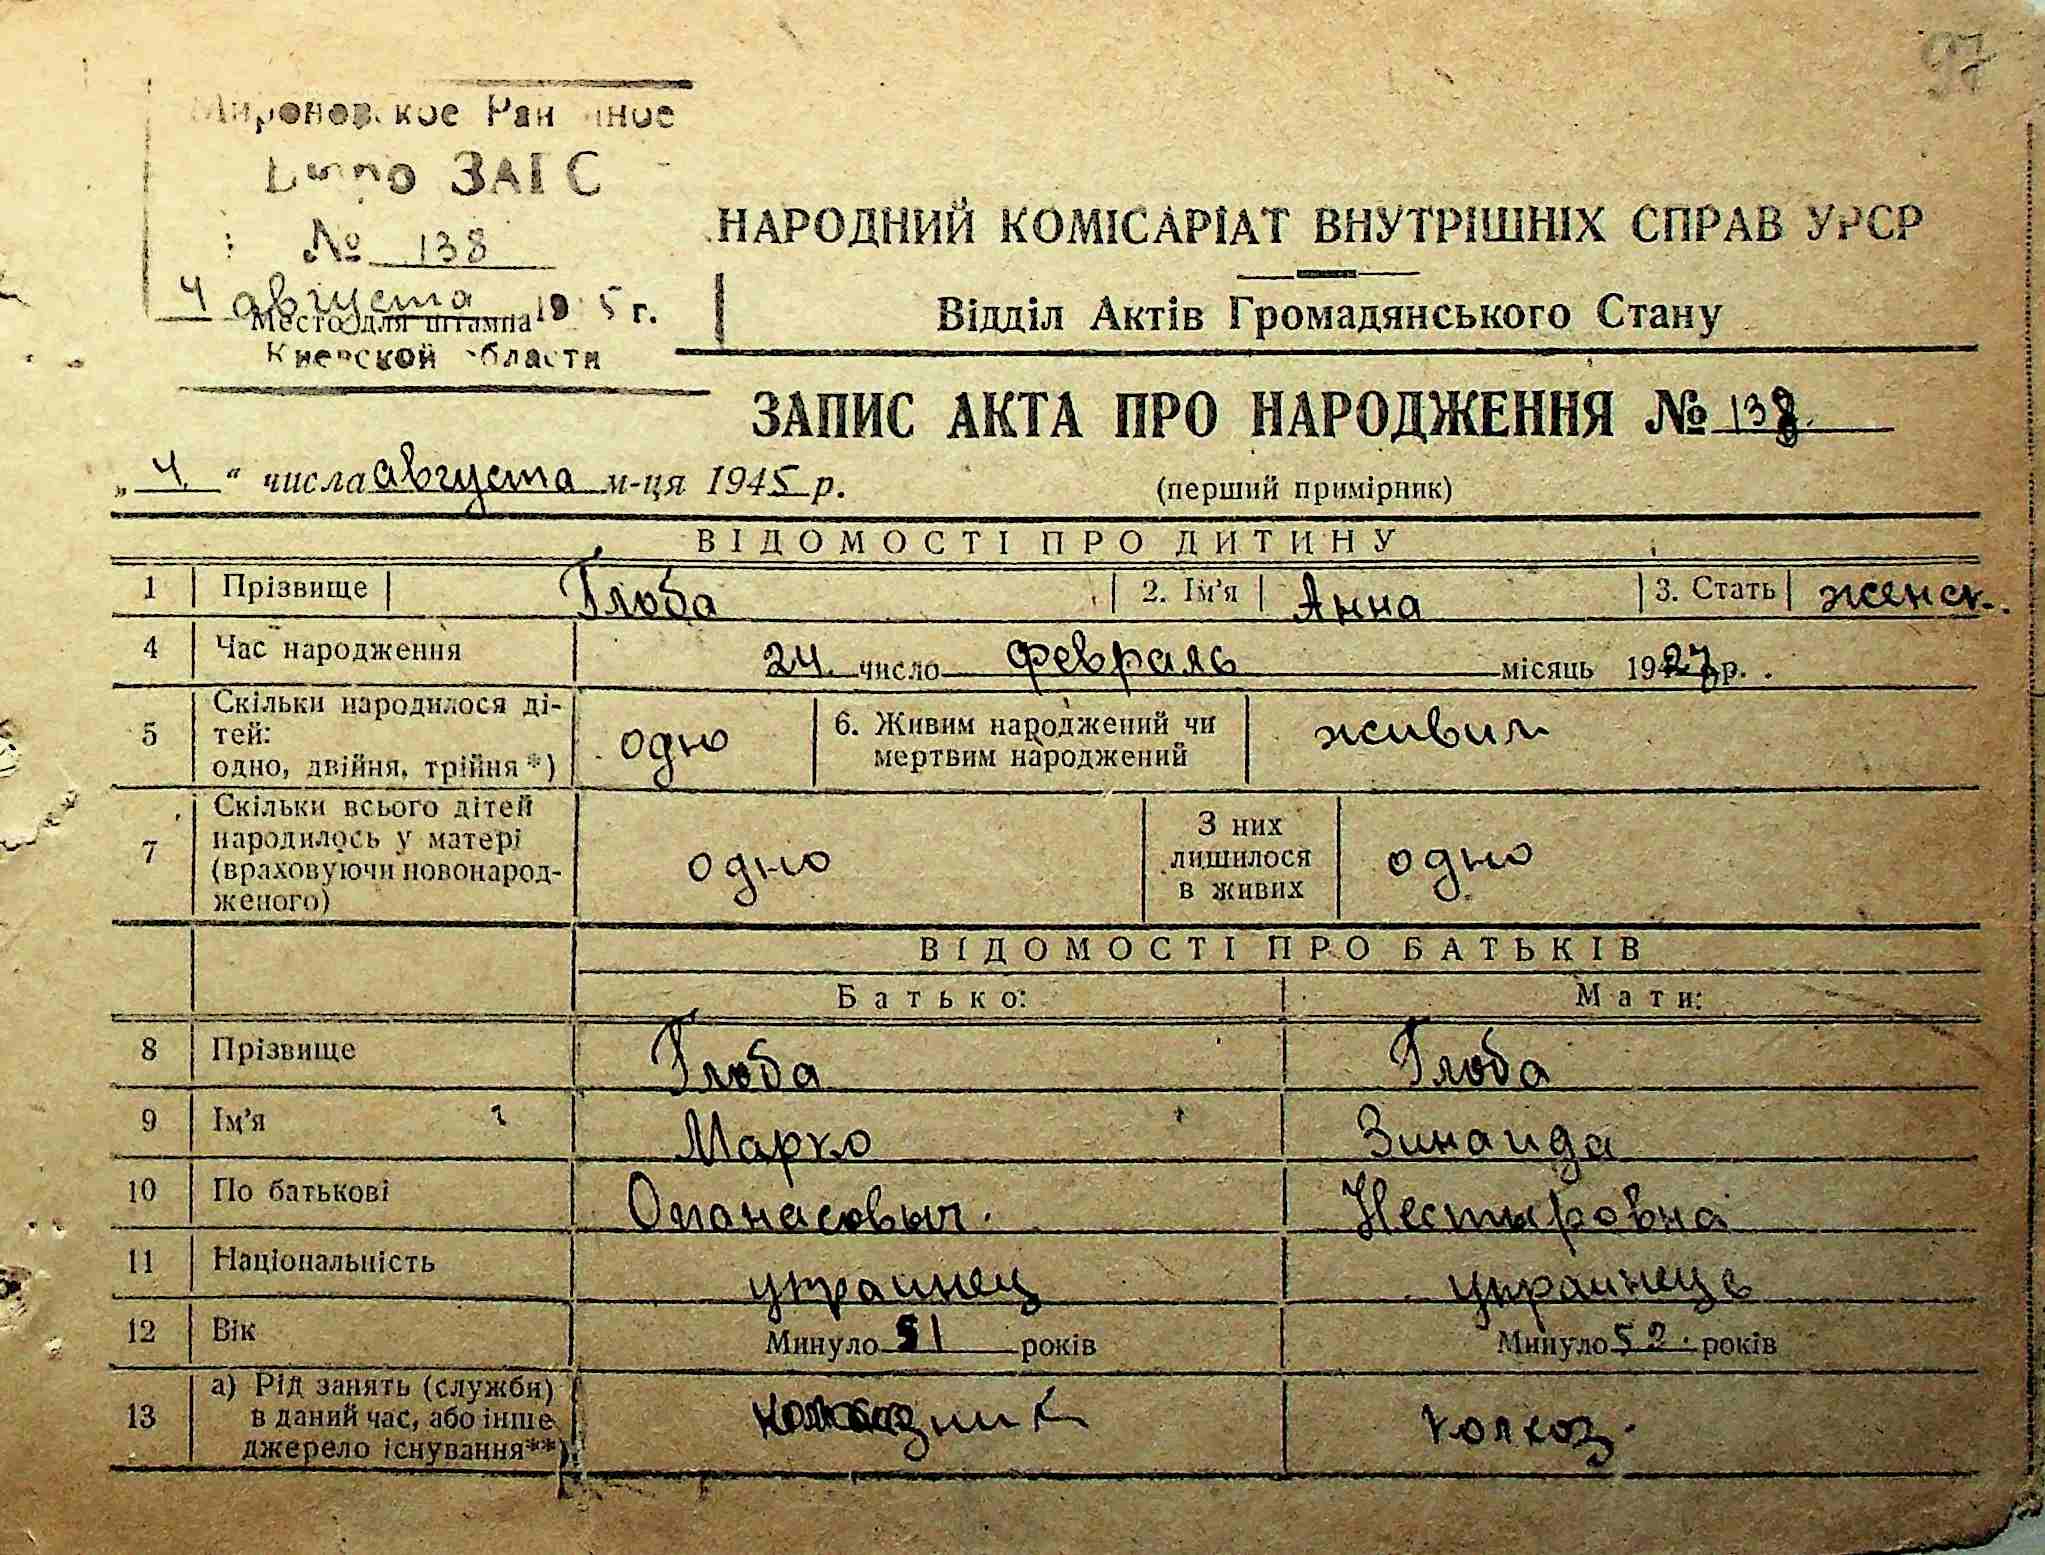 97
Мироновское Районное
Бюро ЗАГС
№ 138
4 августа 1945 г.
Место для штампа
Киевской области
НАРОДНИЙ КОМІСАРІАТ ВНУТРІШНІХ СПРАВ УРСР
Відділ Актів Громадянського Стану
ЗАПИС АКТА ПРО НАРОДЖЕННЯ № 138.
„ 4. “ числа августа м-ця 1945 р. (перший примірник)
ВІДОМОСТІ ПРО ДИТИНУ
1 Прізвище Глоба 2. Ім'я Анна 3. Стать женск.
4 Час народження 24. число февраль місяць 1927 р.
5 Скільки народилося ді-
тей:
одно, двійня, трійня*) одно 6. Живим народжений чи
мертвим народжений живим
7 Скільки всього дітей
народилось у матері
(враховуючи новонарод-
женого) одно З них
лишилося
в живих одно
ВІДОМОСТІ ПРО БАТЬКІВ
Батько: Мати:
8 Прізвище Глоба Глоба
9 Ім'я Марко Зинаида
10 По батькові Опанасовыч. Нестыровна
11 Національність украинец украинець
12 Вік Минуло 51 років Минуло 52. років
13 а) Рід занять (служби)
в даний час, або інше
джерело існування**) колхозник колхоз.